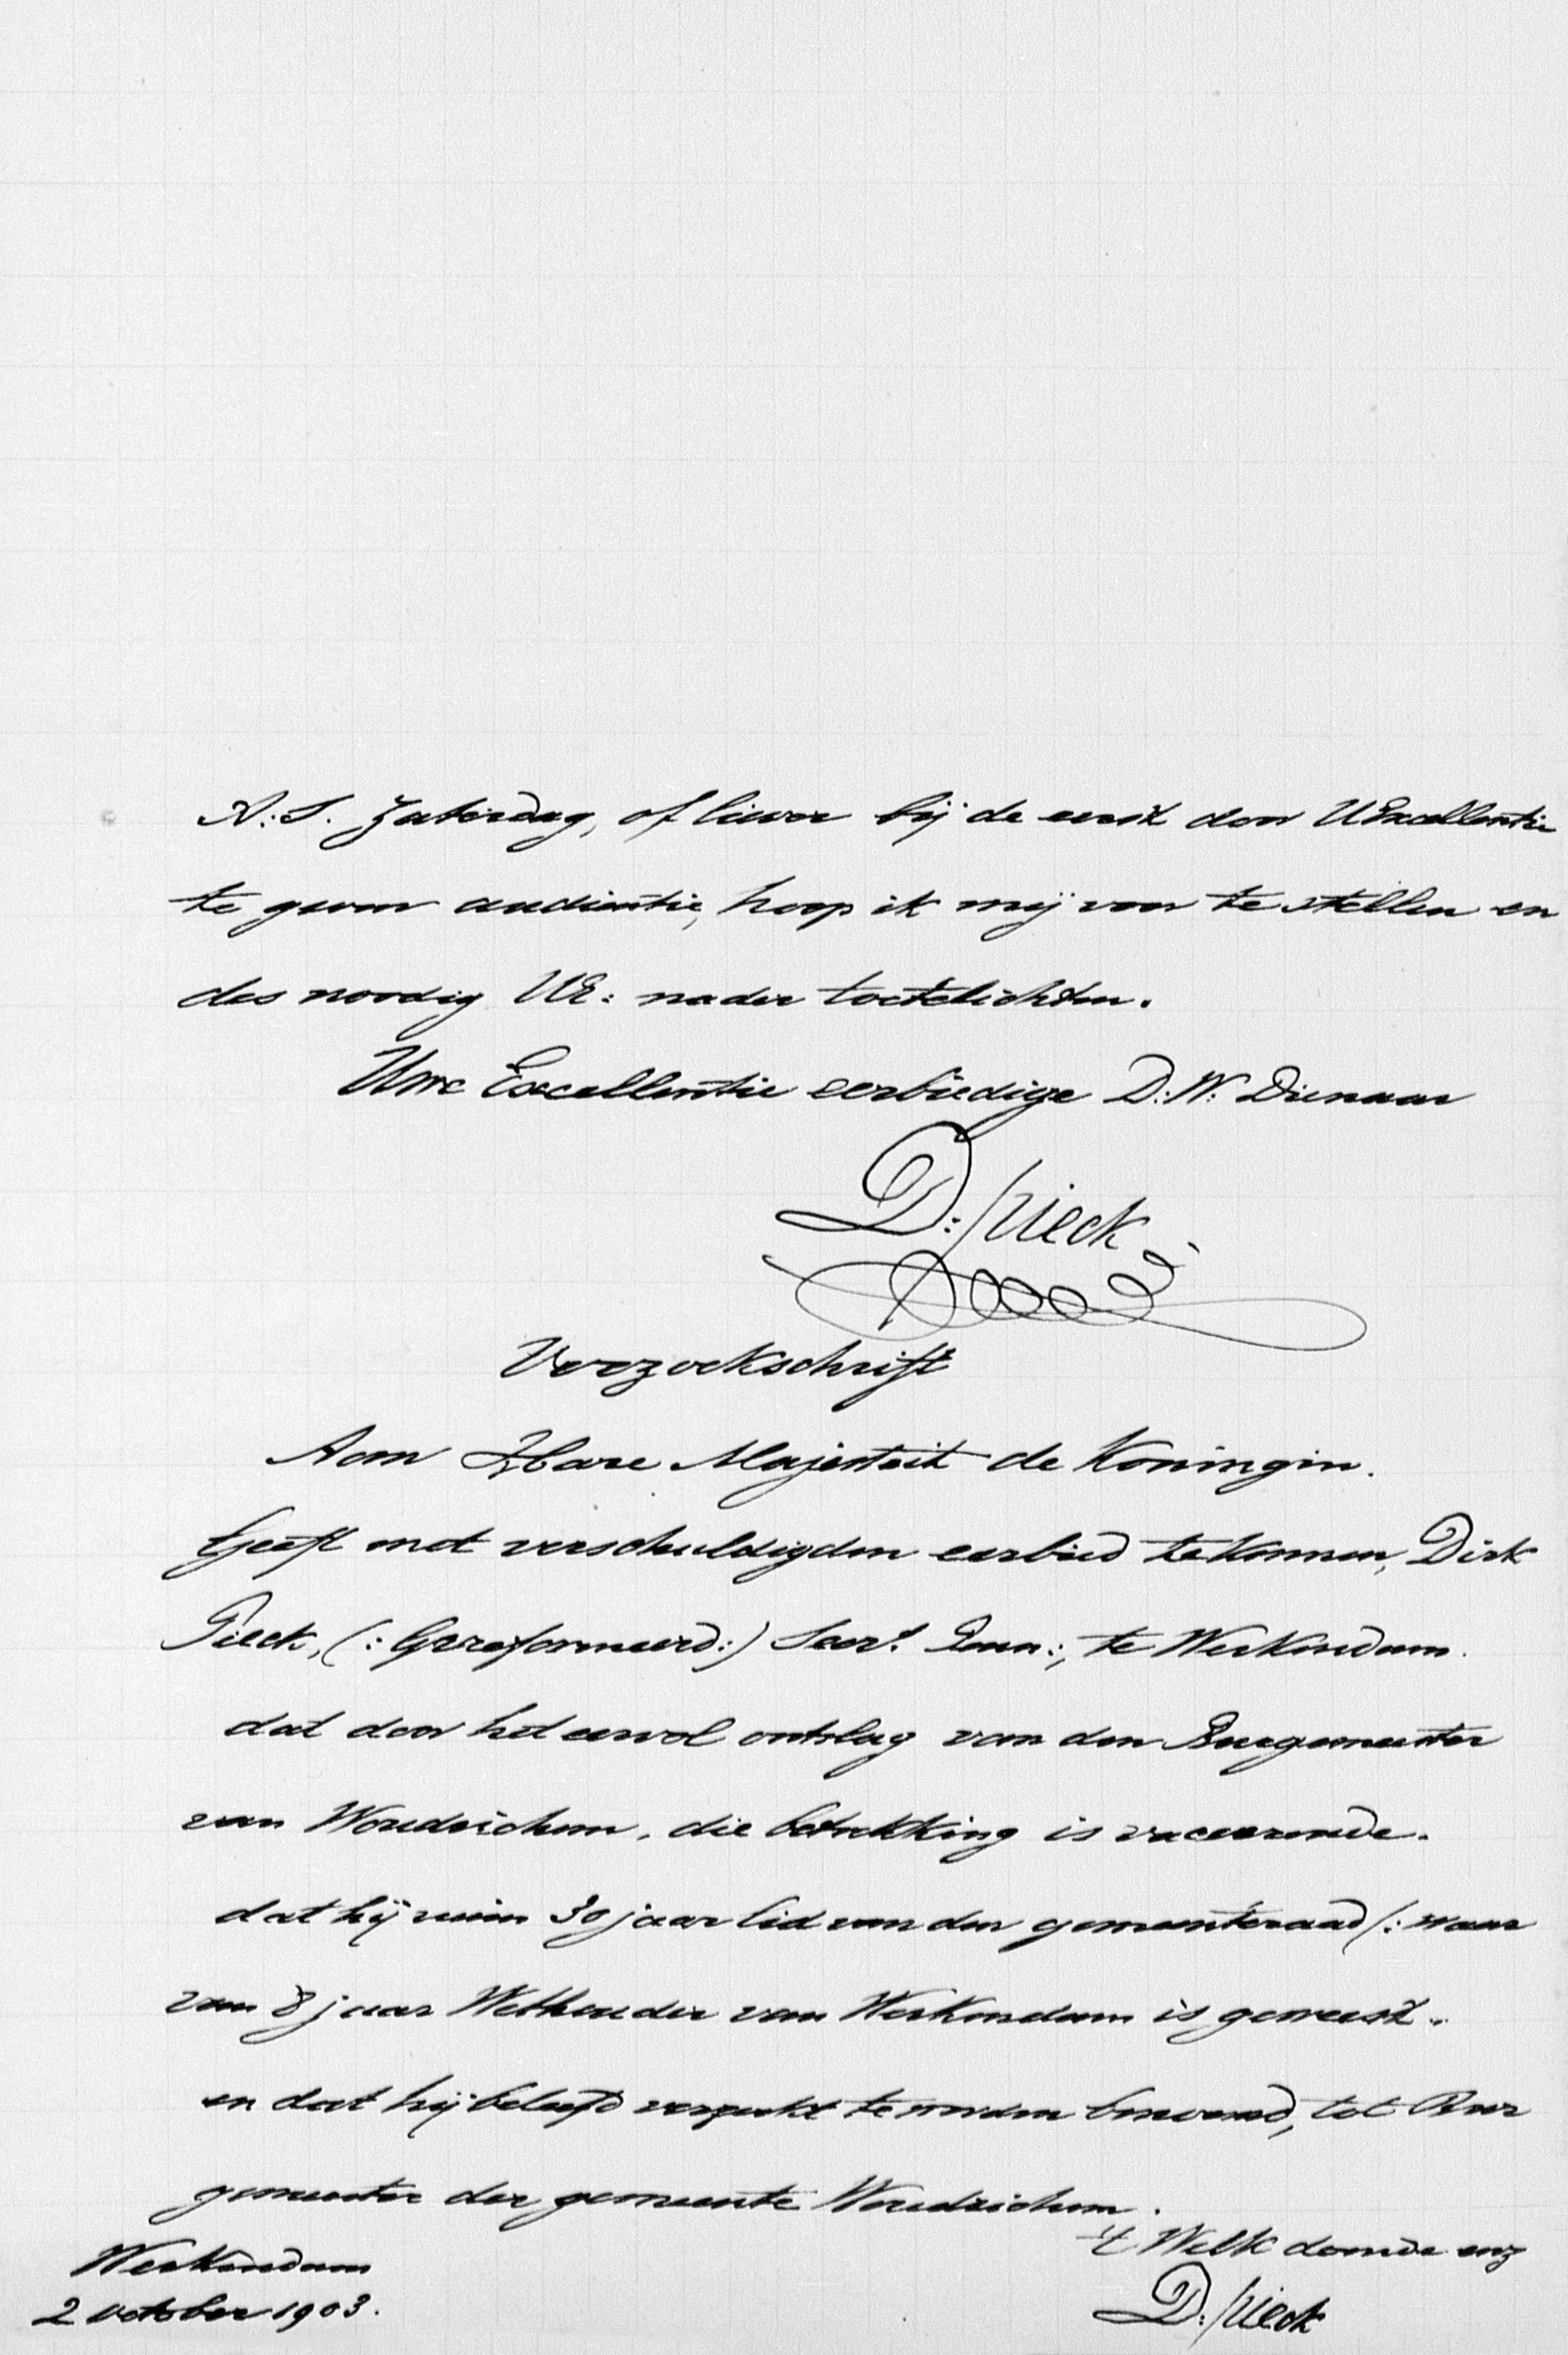 A.S. Zaterdag, of liever bij de eerst door UExcellentie
te geven audientie, hoop ik mij voor te stellen en
des noodig UE: nader toetelichten.
Uwe Excellentie eerbiedige D:W: Dienaar
D: Pieck
Verzoekschrift
Aan Hare Majesteit de Koningin.
Geeft met verschuldigden eerbied te kennen, Dirk
Pieck, (: Gereformeerd:) te Werkendam.
dat door het eervol ontslag van den Burgemeester
van Woudrichem, die betrekking is vaceerende.
dat hij ruim 30 jaar lid van den gemeenteraad (: waar
van 8 jaar Wethouder van Werkendam is geweest.
en dat hij beleefd verzoekt te worden benoemd, tot Bur
gemeester der gemeente Woudrichem.
't Welk doende enz
Werkendam
2 October 1903.
D: Pieck